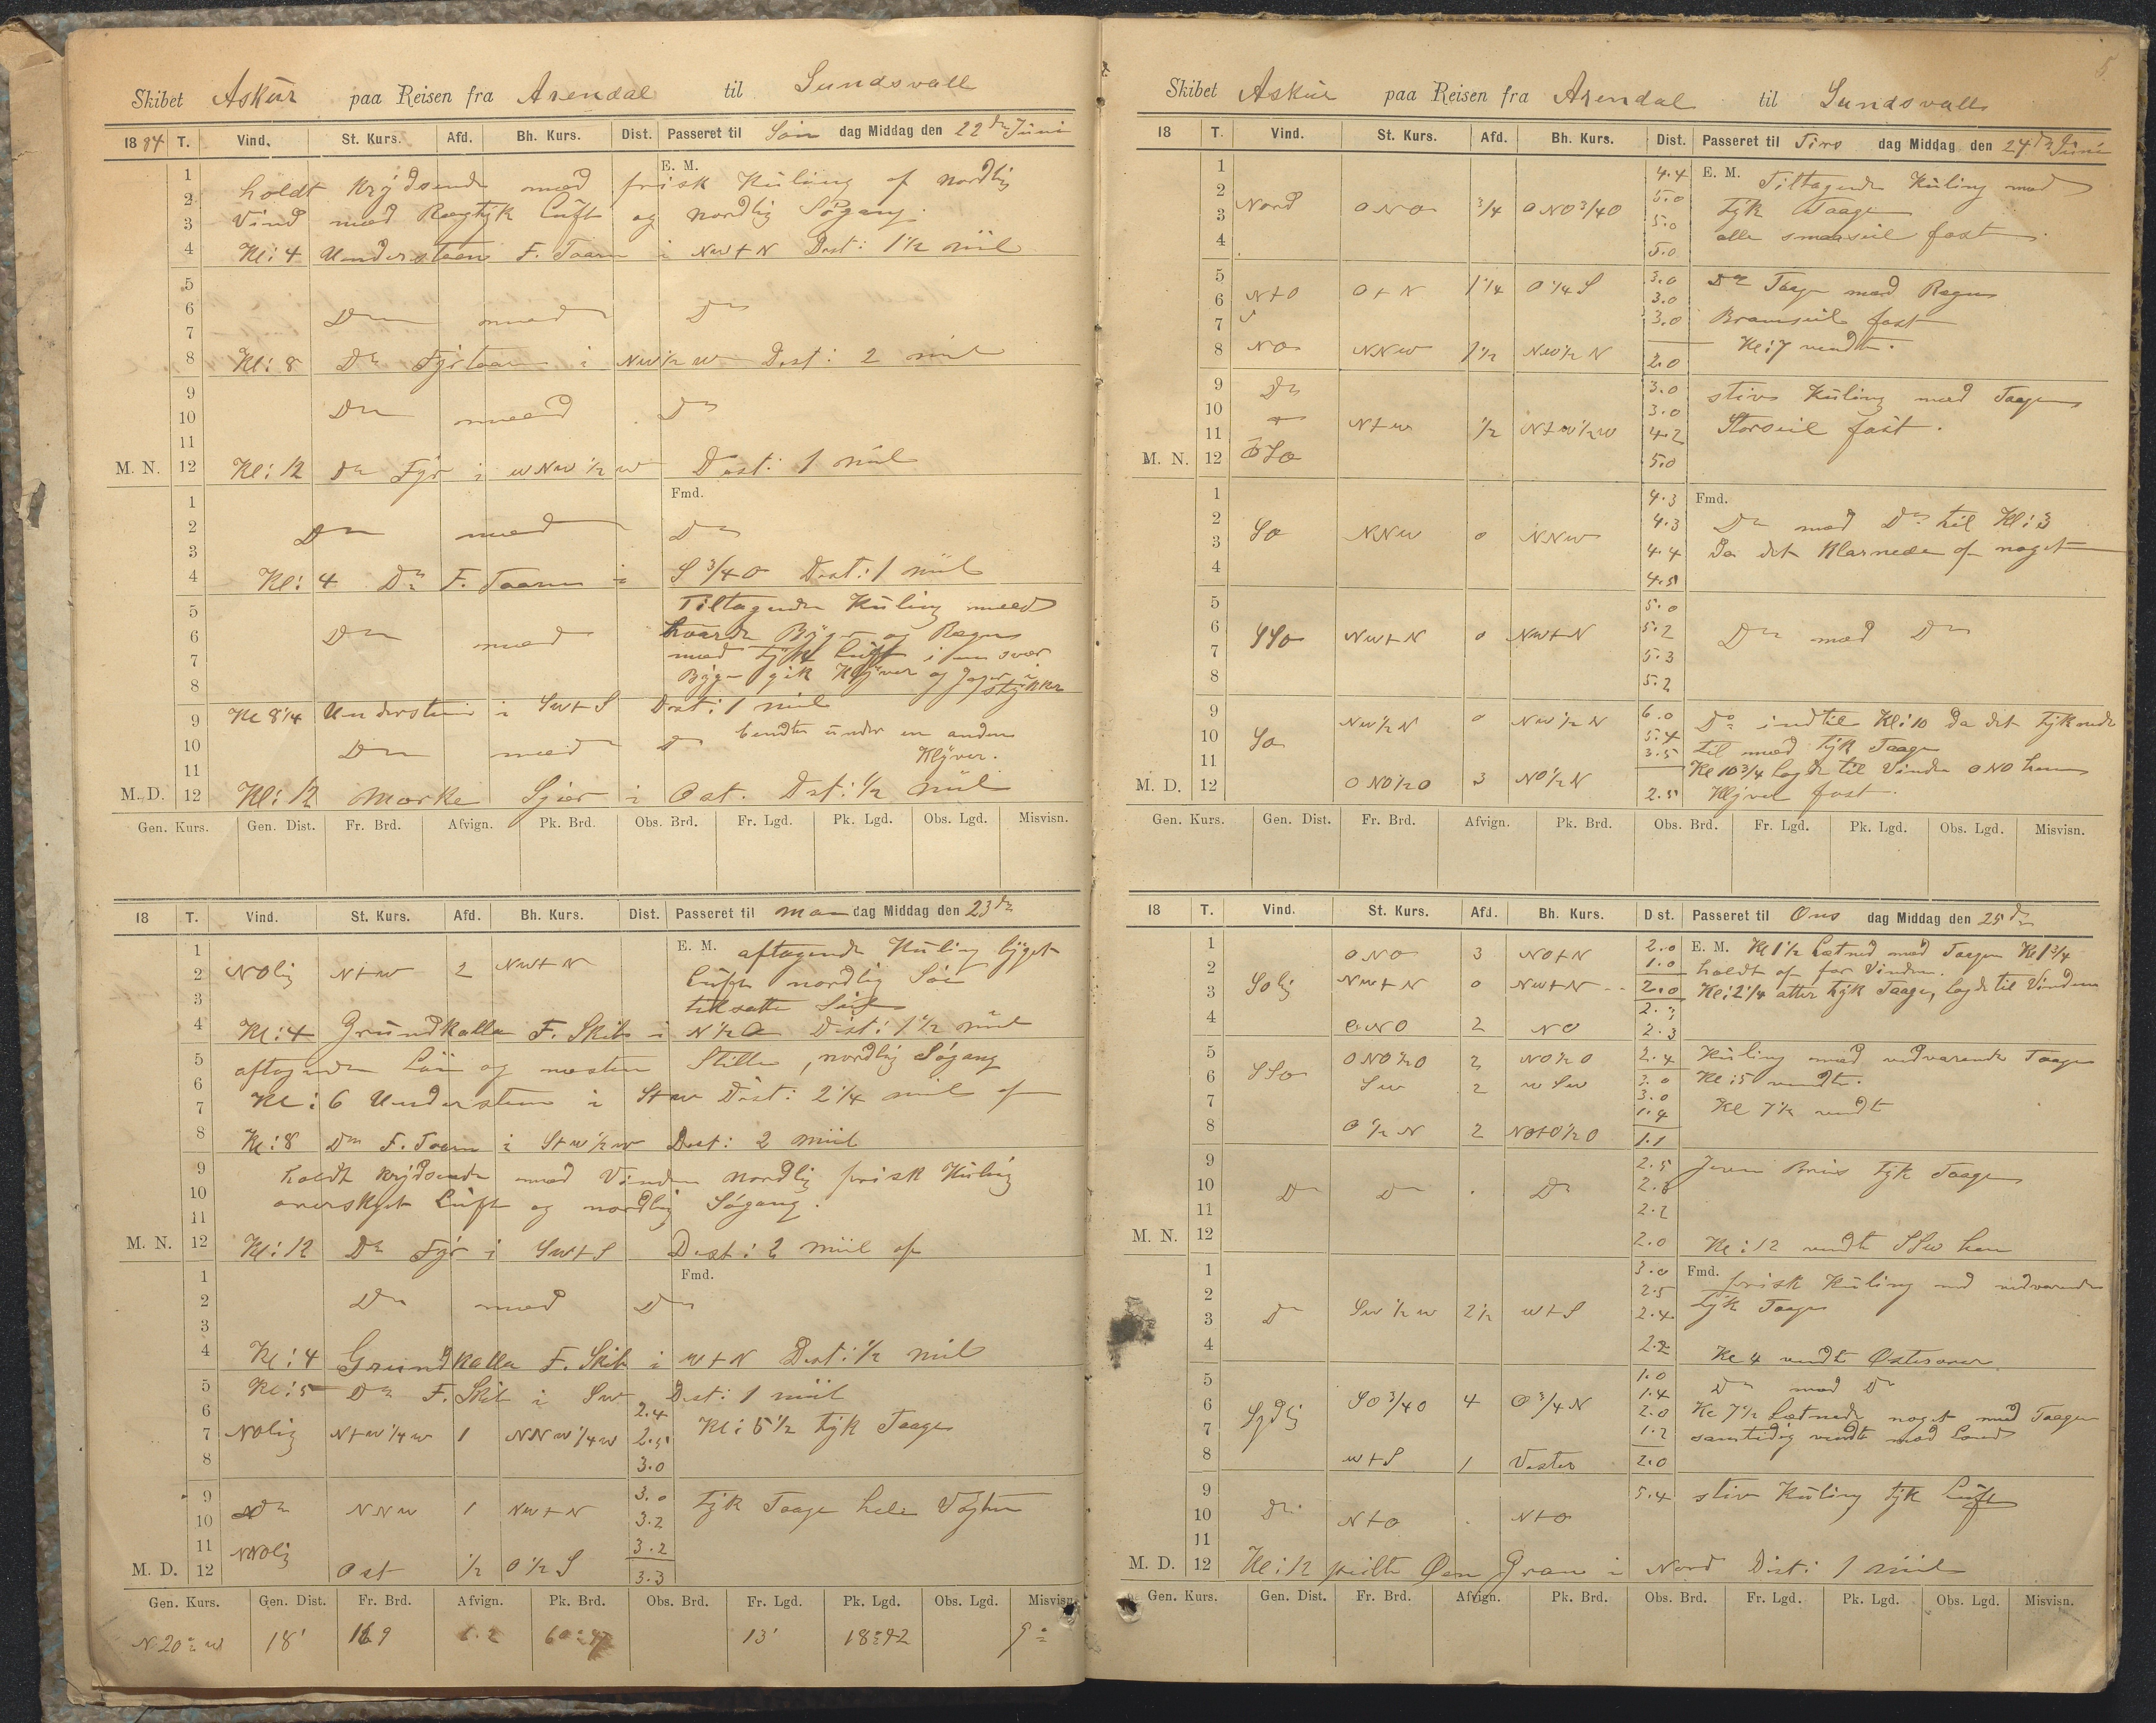 Skibet Askur paa Reisen fra Arendal til Sundsvall
1884 T. Vind. St. Kurs. Afd. Bh. Kurs. Dist. Passeret til Søn dag Middag den 22de Juni
E. M.
1
2 holdt krydsende med frisk Kuling af nordlig
3 Vind med Regtyk Luft og nordlig Søgang.
4 Kl: 4 Understeen F. Taarn i NW+N Dist: 1 1/2 miil
5
6 Do med Do
7
8 Kl: 8 Do Fyrtaarn i NW 1/2 W Dist: 2 miil
9
10 Do med Do
11
M. N. 12 Kl: 12 Do Fyr i WNW 1/2 W Dist: 1 miil
Fmd.
1
2 Do med Do
3
4 Kl: 4 Do F. Taarn i S 3/4 O Dist: 1 miil
5 Tiltagende Kuling med
6 Do med haarde Byger og Regn
7 med tyk Luft i en svær
8 Byge gik Klyver og Jager i stykker
9 Kl 8 1/4 Understeen i SW+S Dist: 1 miil
10 Do med Do bendte under en anden
11 Klyver.
M. D. 12 Kl: 12 Mørke Sjær i Ost. Dist: 1/2 miil
Gen. Kurs. Gen. Dist. Fr. Brd. Afvign. Pk. Brd. Obs. Brd. Fr. Lgd. Pk. Lgd. Obs. Lgd. Misvisn.
18 T. Vind. St. Kurs. Afd. Bh. Kurs. Dist. Passeret til Man dag Middag den 23de
1 E. M. aftagende Kuling byget
2 NOlig N+W 2 NW+N Luft nordlig Sø
3 tilsatte Seil
4 Kl: 4 Grundkalla F. Skib i N 1/2 O Dist: 1 1/2 miil
5 aftagende og næsten Stille, nordlig Søgang
6
7 Kl: 6 Understeen i S+W Dist: 2 1/4 miil af
8 Kl: 8 Do F. Taarn i S+W 1/2 W Dist: 2 miil
9 holdt krydsende med Vinden nordlig frisk Kuling
10 overskyet Luft og nordlig Søgang.
11
M. N. 12 Kl: 12 Do Fyr i SW+S Dist: 2 miil af
Fmd.
1
2 Do med Do
3
4 Kl: 4 Grundkalla F. Skib i W+N Dist: 1/2 miil
5 Kl: 5 Do F. Skib i SW Dist: 1 miil
6 2.4
7 NOlig N+W 1/4 W 1 NNW 1/4 W 2.5 Kl: 5 1/2 tyk Taage
8 3.0
9 3.0
10 Do NNW 1 NW+N 3.2 tyk Taage hele Vagten
11 NNOlig 3.2
M. D. 12 Ost 1/2 O 1/2 S 3.3
Gen. Kurs. Gen. Dist. Fr. Brd. Afvign. Pk. Brd. Obs. Brd. Fr. Lgd. Pk. Lgd. Obs. Lgd. Misvisn.
N 20° W 18' 13' 18°42 9°
5
Skibet Askur paa Reisen fra Arendal til Sundsvall
18 T. Vind. St. Kurs. Afd. Bh. Kurs. Dist. Passeret til Tirs dag Middag den 24de Juni
1 4.4 E. M. Tiltagende Kuling med
2 Nord ONO 3/4 ONO 3/4 O 5.0 tyk Taage
3 5.0 alle smaaseil fast.
4 5.0
5 3.0 Do Taage med Regn
6 N+O O+N 1 1/4 O 1/4 S 3.0
7 3.0 Bramseil fast
8 NO NNW 1 1/2 NW 1/2 N 2.0 Kl: 7 vendte.
9 Do 3.0 stiv Kuling med Taage
10 3.0
11 N+W 1/2 N+W 1/2 W 4.2 Storseil fast.
M. N. 12 OSO 5.0
1 4.3 Fmd.
2 SO NNW 0 NNW 4.3 Do med Do til Kl: 3
3 4.4 Da det klarnede af noget
4 4.5
5 5.0
6 SSO NW+N 0 NW+N 5.2 Do med Do
7 5.3
8 5.2
9 NW 1/2 N 0 NW 1/2 N 6.0 Do indtil Kl: 10 da det tyknede
10 SO 5.4 til med tyk Taage
11 3.5 Kl 10 3/4 lagde til Vinden ONO hen
M. D. 12 ONO 1/2 O 3 NO 1/2 N 2.5 Klyver fast.
Gen. Kurs. Gen. Dist. Fr. Brd. Afvign. Pk. Brd. Obs. Brd. Fr. Lgd. Pk. Lgd. Obs. Lgd. Misvisn.
18 T. Vind. St. Kurs. Afd. Bh. Kurs. Dist. Passeret til Ons dag Middag den 25de
1 ONO 3 NO+N 2.0 E. M. Kl 1 1/2 Letned med Taagen Kl 1 3/4
2 1.0 holdt af for Vinden.
3 SOlig NW+N 0 NW+N 2.0 Kl: 2 1/4 atter tyk Taage, lagde til Vinden
4 ONO 2 NO 2.3
5 ONO 1/2 O 2 NO 1/2 O 2.4 Kuling med vedvarende Taage
6 SSO SW 2 WSW 3.0 Kl: 5 vendte.
7 3.0 Kl 7 1/2 vendte
1.4
8 O 1/2 N 2 NO+O 1/2 O 1.1
9 2.5 Jevn Bris tyk Taage
10 Do Do . Do 2.3
11 2.2
M. N. 12 2.0 Kl: 12 vendte SSW hen
1 3.0 Fmd. frisk Kuling med vedvarende
2 2.5 tyk Taage
3 Do SW 1/2 W 2 1/2 W+S 2.4
4 2.2 Kl 4 vendte Østerover.
5 1.0 Do med Do
6 SO 3/4 O 4 O 3/4 N 1.4 Kl 7 1/2 Letnede noget med Taagen
7 Sydlig 2.0 samtidig vendte mod Land
1.2
8 W+S 1 Vester 2.0
9 5.4 stiv Kuling tyk Luft
10 Do N+O . N+O
11
M. D. 12 Kl: 12 peilte Øen Gran i Nord Dist: 1 miil
Gen. Kurs. Gen. Dist. Fr. Brd. Afvign. Pk. Brd. Obs. Brd. Fr. Lgd. Pk. Lgd. Obs. Lgd. Misvisn.